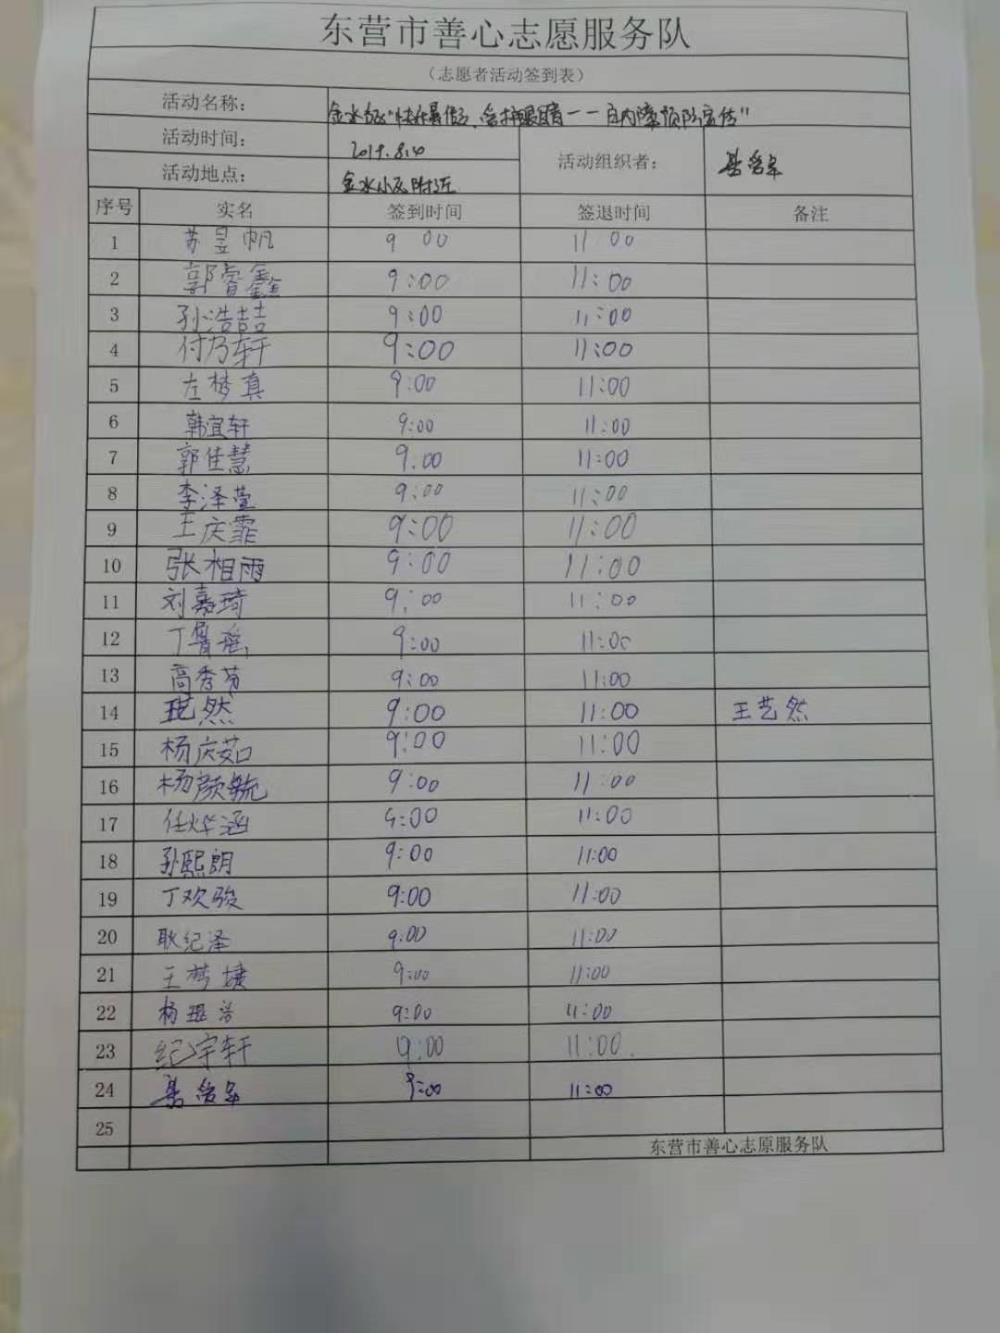 东营市善心志愿服务队
（志愿者活动签到表）
活动名称： 金水社区"快乐暑假、合护眼睛——白内障预防宣传"
活动时间： 2019.8.10 活动组织者：
活动地点： 金水小区附近
序号 实名 签到时间 签退时间 备注
1 苏昱帆 9 00 11 00
2 郭睿鑫 9:00 11:00
3 孙浩喆 9:00 11:00
4 付乃轩 9:00 11:00
5 左梦真 9:00 11:00
6 韩宜轩 9:00 11:00
7 郭佳慧 9.00 11:00
8 李泽萱 9:00 11:00
9 王庆霏 9:00 11:00
10 张相雨 9:00 11:00
11 刘嘉琦 9:00 11:00
12 丁 瑶 9:00 11:00
13 高秀芳 9:00 11:00
14 王艺然 9:00 11:00 王艺然
15 杨庆茹 9:00 11:00
16 杨颜毓 9:00 11:00
17 任烨涵 9:00 11:00
18 孙熙朗 9:00 11:00
19 丁欢骏 9:00 11:00
20 耿纪泽 9:00 11:00
21 王梦捷 9:00 11:00
22 杨琨浩 9:00 11:00
23 纪宇轩 9:00 11:00.
24 9:00 11:00
25
东营市善心志原服务队